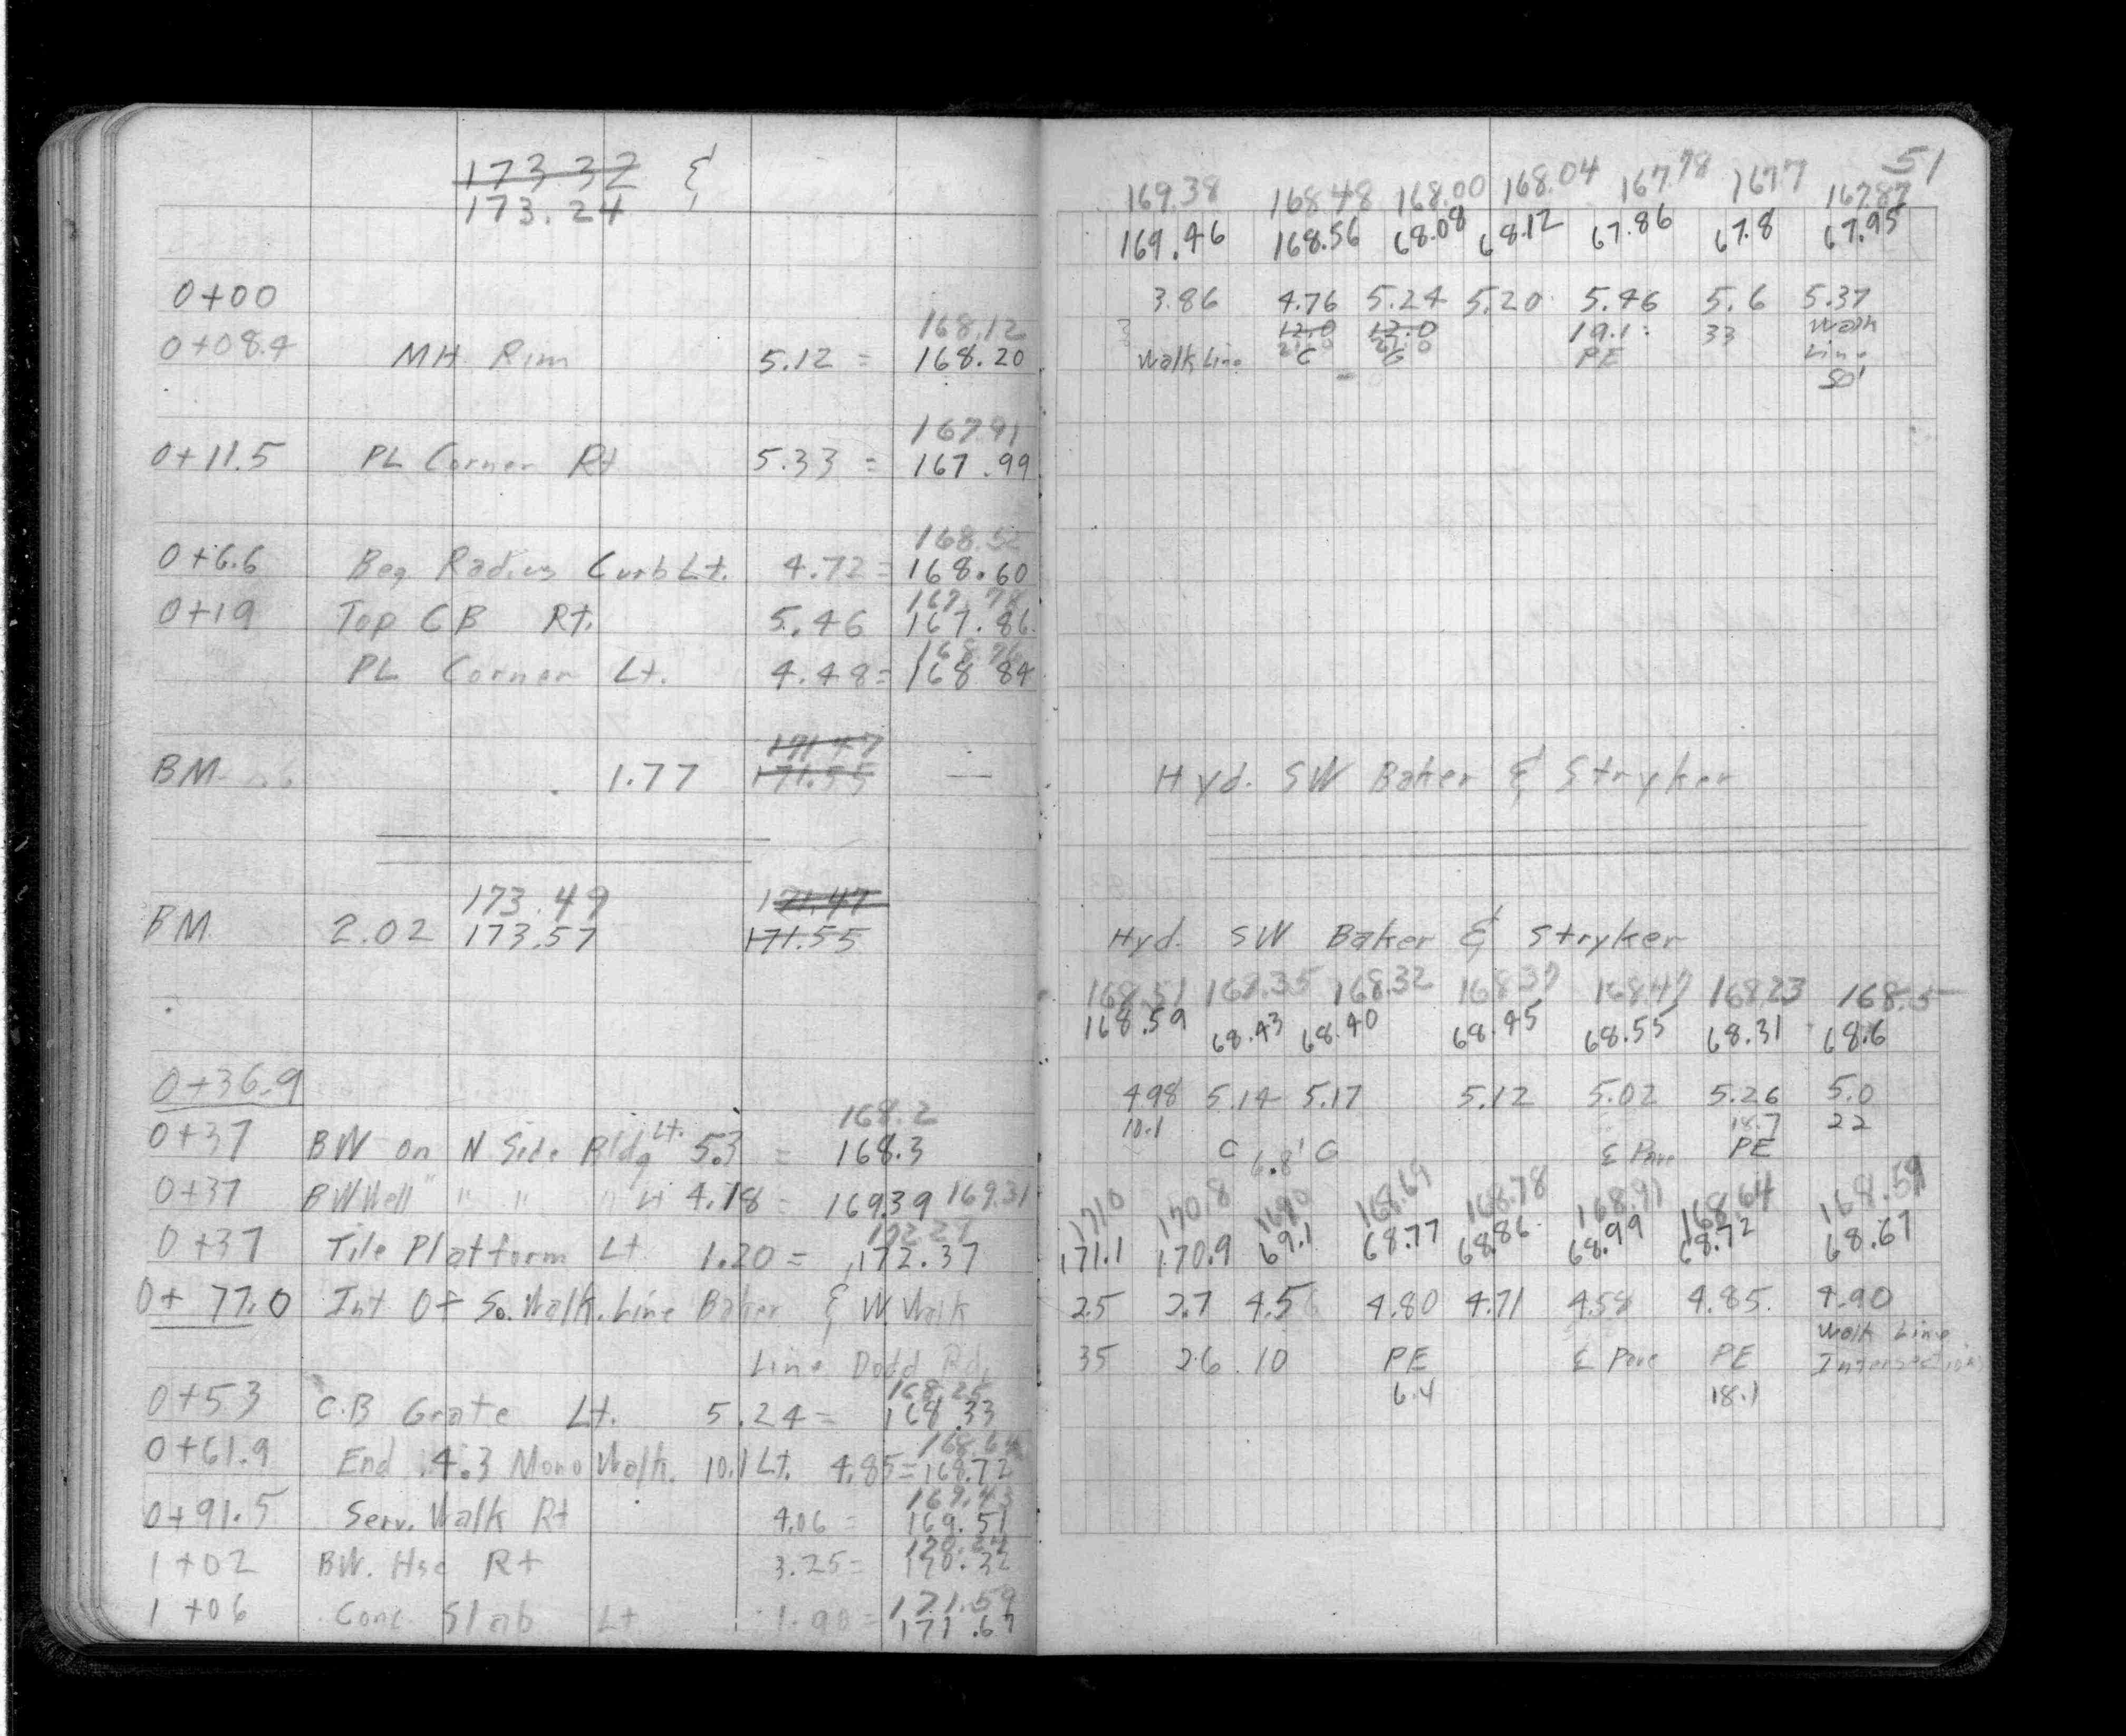 173.32 ₵
173.24
0+00
168.12
0+08.4 MH Rim 5.12 = 168.20
167.91
0+11.5 PL Corner Rt 5.33 = 167.99
168.52
0+6.6 Beg Radius Curb Lt. 4.72 = 168.60
167.78
0+19 Top CB Rt. 5.46 167.86
168.76
PL Corner Lt. 4.48 = 168.84
171.47
BM 1.77 171.55 —
173.49 171.47
BM 2.02 173.57 171.55
0+36.9
168.2
0+37 BW on N Side Bldg Lt. 5.3 = 168.3
0+37 BW Well " " " Lt 4.18 = 169.39 169.31
0+37 Tile Platform Lt 1.20 = 172.37
0+77.0 Int Of So. Walk Line Baker & W. Walk
Line Dodd Rd.
168.25
0+53 C.B Grate Lt. 5.24 = 168.33
168.64
0+61.9 End 4.3 Mono Walk. 10.1 Lt. 4.85 = 168.72
169.43
0+91.5 Serv. Walk Rt 4.06 = 169.51
170.24
1+02 BW. Hse Rt 3.25 = 170.32
171.59
1+06 Conc. Slab Lt 1.90 = 171.67
51
169.38 168.48 168.00 168.04 167.78 167.7 167.87
169.46 168.56 68.08 68.12 67.86 67.8 67.95
3.86 4.76 5.24 5.20 5.46 5.6 5.37
12.0 12.0 19.1 33 Walk
Walk Line 21.0 21.0 PE Line
C G 50'
Hyd. SW Baker & Stryker
Hyd. SW Baker & Stryker
168.51 168.35 168.32 168.37 168.47 168.23 168.5
168.59 68.43 68.40 68.45 68.55 68.31 68.6
4.98 5.14 5.17 5.12 5.02 5.26 5.0
10.1 18.7 22
C 6.8' G ₵ Pave PE
171.0 170.8 169.0 168.69 168.78 168.91 168.64 168.59
171.1 170.9 69.1 68.77 68.86 68.99 68.72 68.67
2.5 2.7 4.5 4.80 4.71 4.58 4.85 4.90
Walk Line
35 26 10 PE ₵ Pave PE Intersection
6.4 18.1